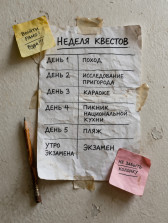 НЕДЕЛЯ КВЕСТОВ
ДЕНЬ 1 ПОХОД
ДЕНЬ 2 ИССЛЕДОВАНИЕ
ПРИГОРОДА
ДЕНЬ 3 КАРАОКЕ
ДЕНЬ 4 ПИКНИК
НАЦИОНАЛЬНОЙ
КУХНИ
ДЕНЬ 5 ПЛЯЖ
УТРО
ЭКЗАМЕНА ЭКЗАМЕН
НЕ ЗАБЫТЬ